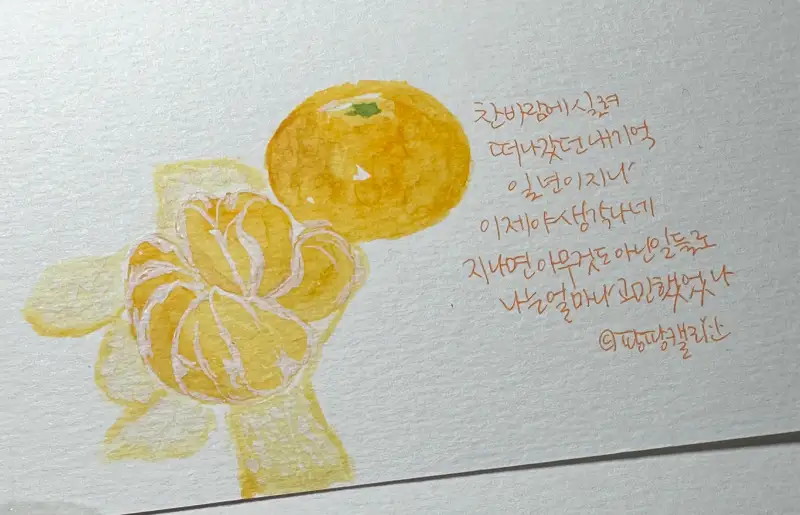 찬바람에 실려
떠나갔던 내 기억
일 년이 지나
이제야 생각나네
지나면 아무것도 아닌 일들로
나는 얼마나 고민했었나
©땅땅캘리안